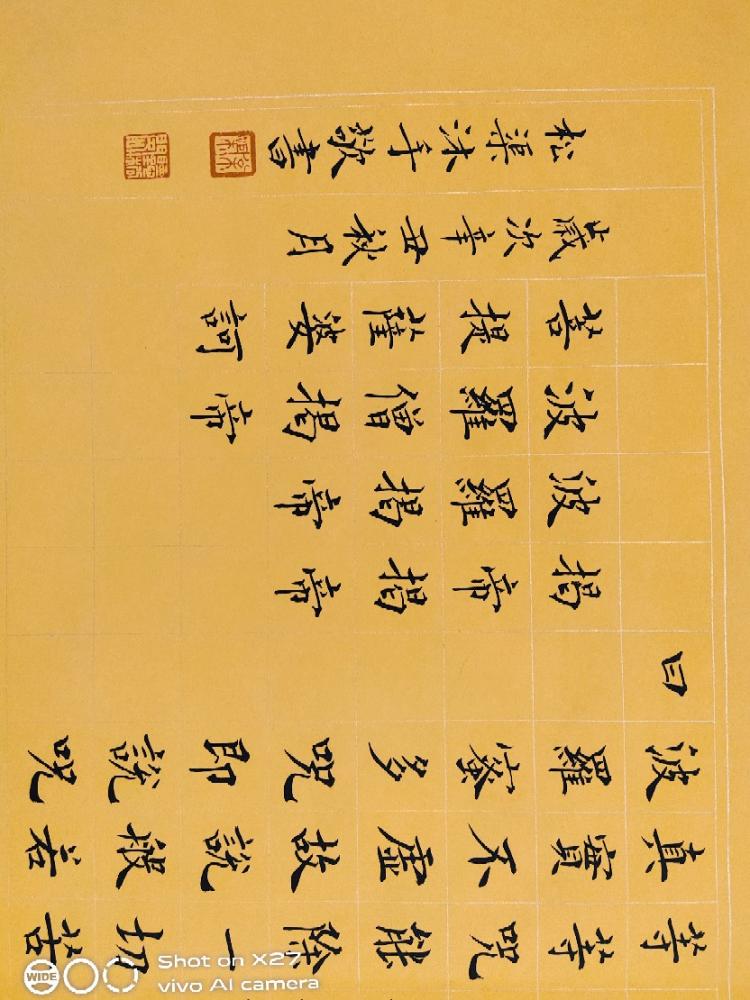 等等咒能除一切苦
真實不虛故說般若
波羅蜜多咒即說咒
曰
揭帝揭帝
波羅揭帝
波羅僧揭帝
菩提薩婆訶
歲次辛丑秋月
松渠沐手敬書
WIDE
Shot on X27
vivo AI camera